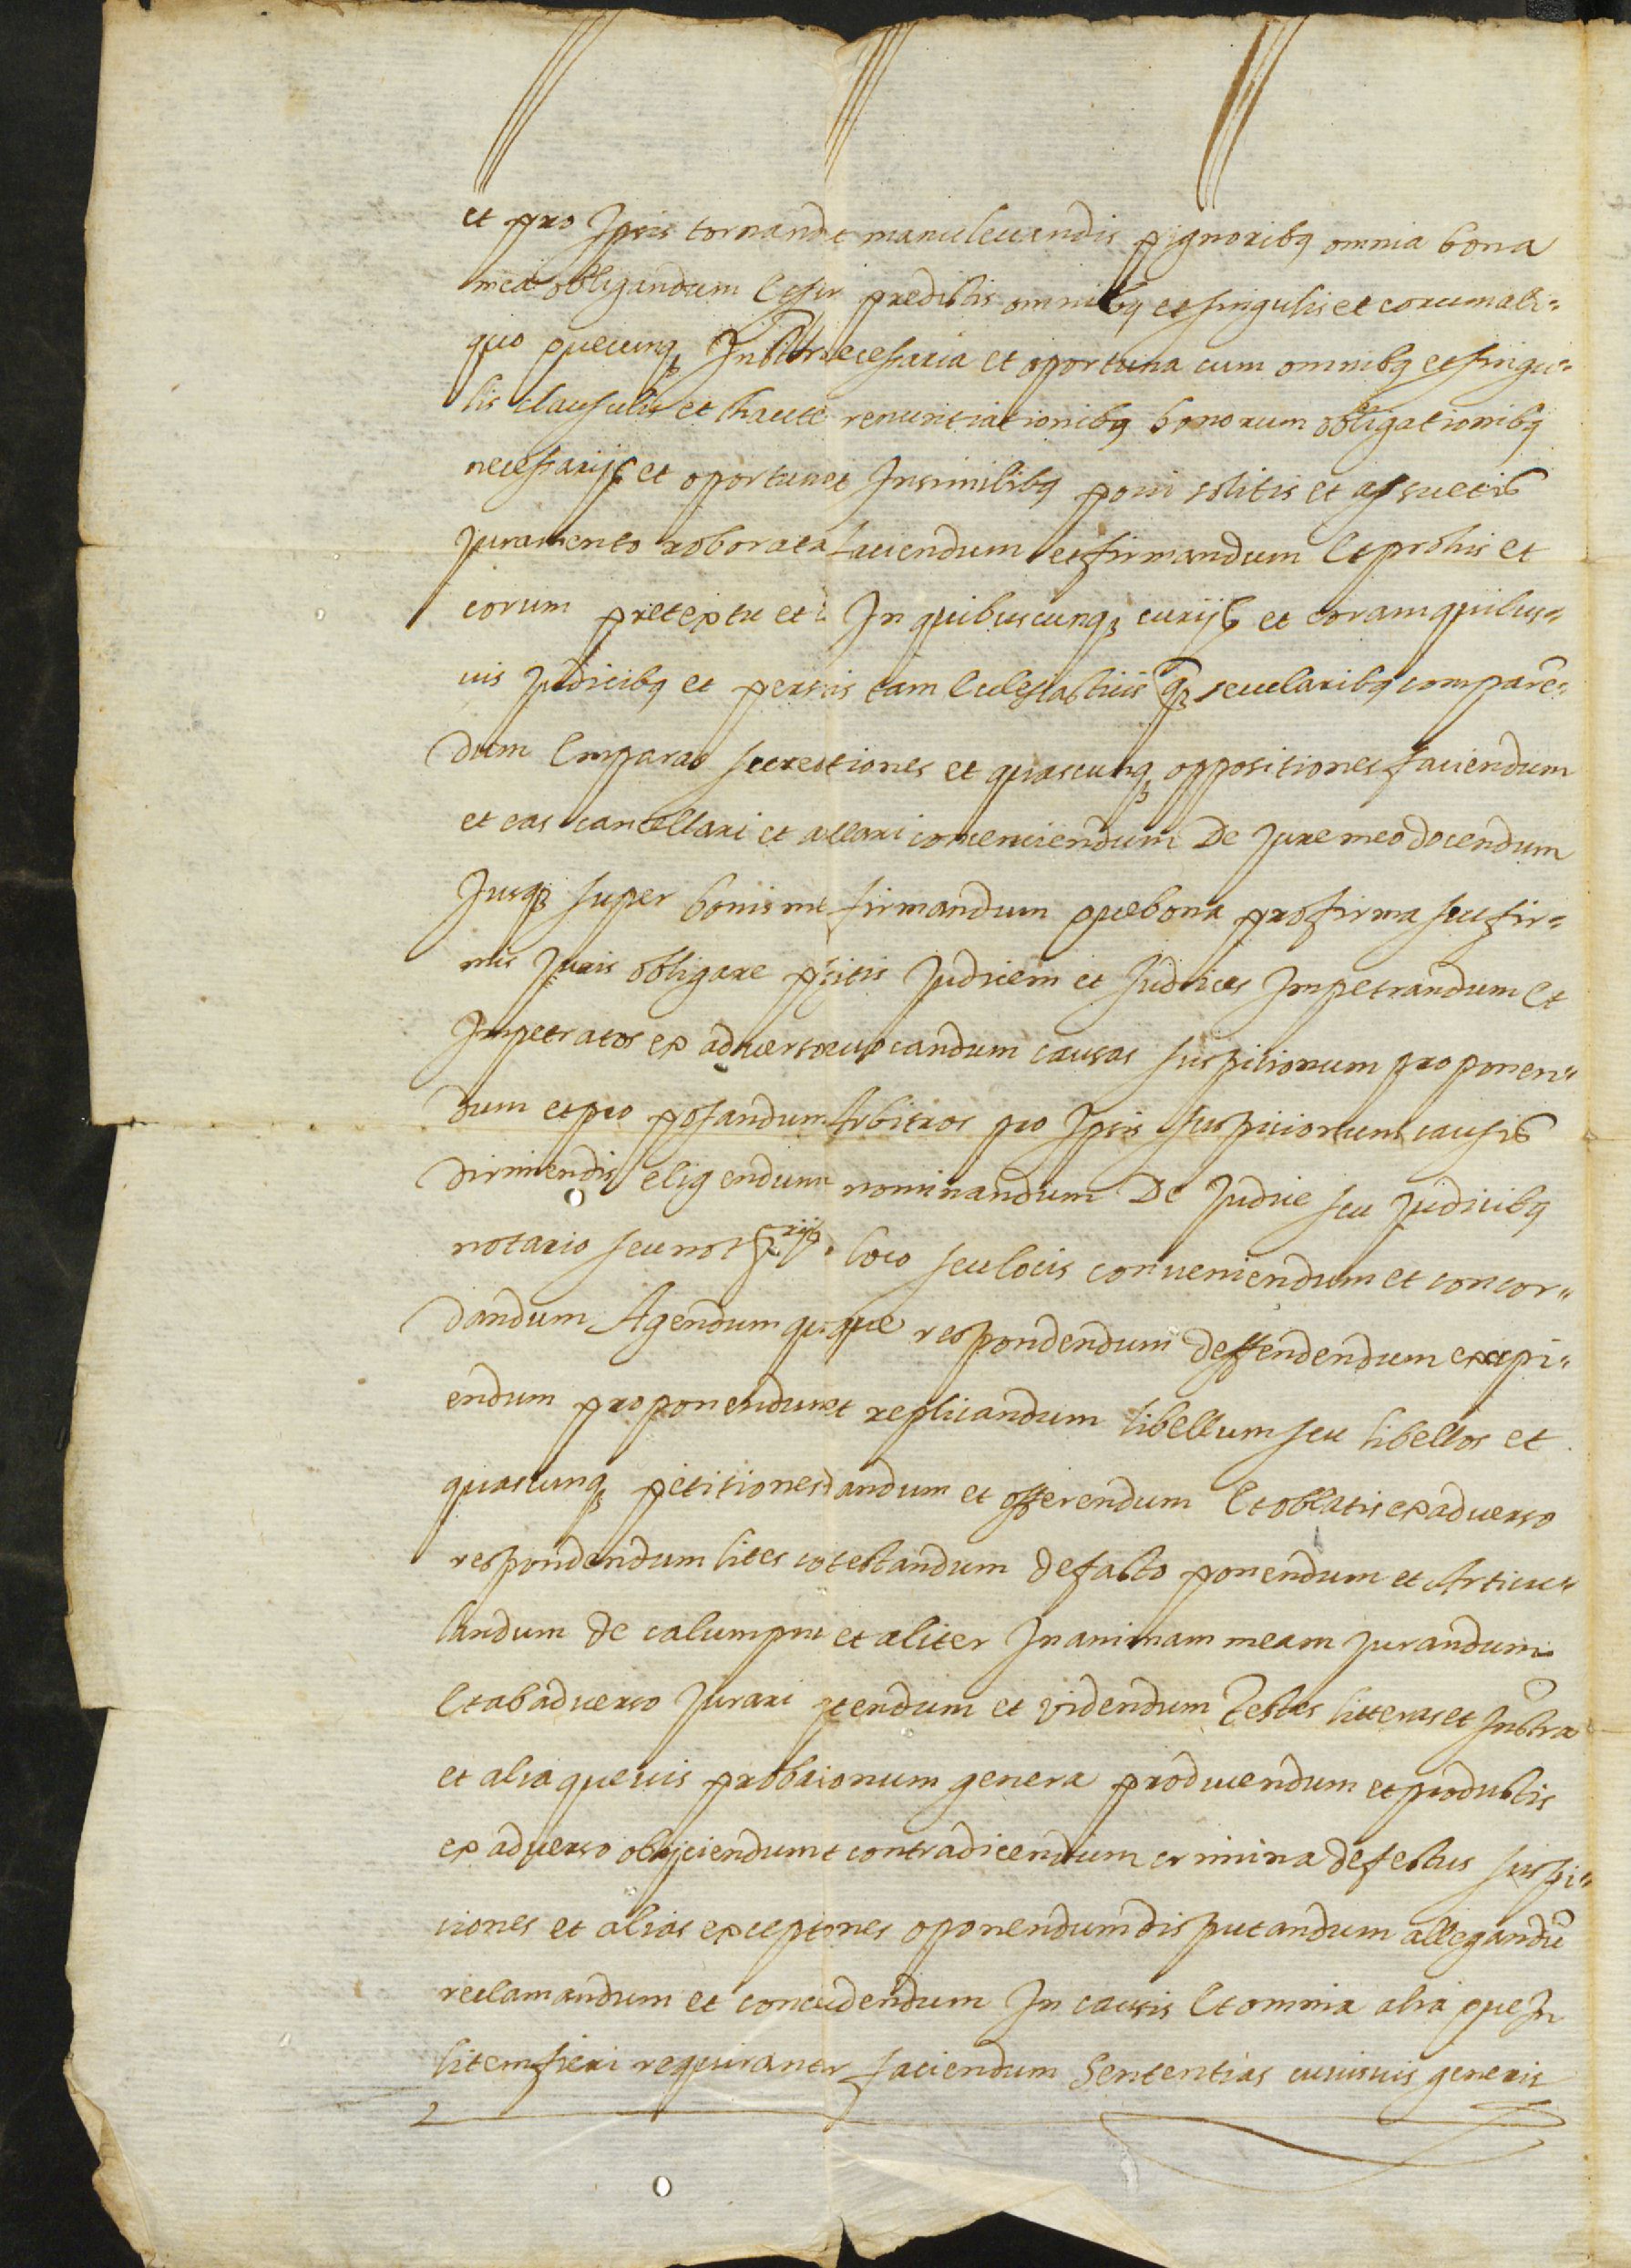 et pro Ipsis tornand et manulevandis pignoribq omnia bona
mea obligandum Et sup predictis omnibq et singulis et eorum ali=
quo quecunq Instra necessaria et oportuna cum omnibq et singu=
lis clausulis et renuntiationibq bonorum obligationibq
necessarijs et oportunet Insimilibq poni solitis et assuetis
Juramento roborata faciendum et firmandum Et pro his et
eorum pretextu et In quibuscunq curijs et coram quibus=
vis Judicibq et personis tam Ecclesiasticis q secularibq comparen=
dum Emparas et quascunq oppositiones faciendum
et eas cancellari et conveniendum De Jure meo docendum
Jusq super bonis firmandum que bona pro firma seu fir=
mis Juris obligare positis Judicem et Judices Impetrandum Et
Impetratos ex adverso revocandum causas suspitionum proponen=
dum et pro posandum Arbitros pro Ipsis suspicionum causis
dirimendis eligendum nominandum De Judice seu Judicibq
notario seu notarijs loco seu locis conveniendum et concor=
dandum Agendum quoque respondendum deffendendum excipi=
endum proponendum et replicandum libellum seu libellos et
quascunq petitiones dandum et offerendum Et oblatis ex adverso
respondendum lites cotestandum de facto ponendum et Articu=
landum de calumpni et aliter In animam meam Jurandum
Et ab adverso Jurari petendum et videndum Testes litteras et Instra
et alia quevis probaionum genera producendum et productis
ex adverso obijciendum et contradicendum crimina defectus suspi=
ciones et alias exceptiones oponendum disputandum allegandu
reclamandum et concludendum In causis Et omnia alia que In
litem fieri requirantur faciendum Sententias cuiusvis generis